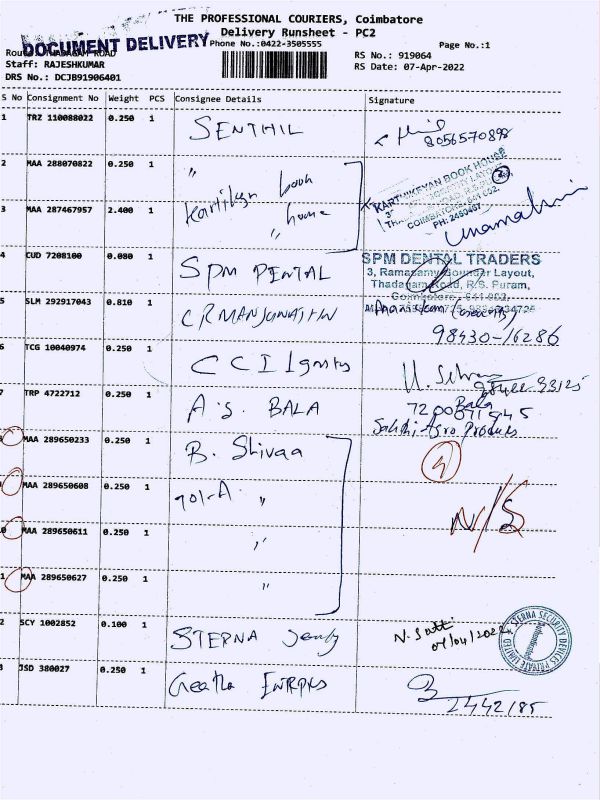 THE PROFESSIONAL COURIERS, Coimbatore
Delivery Runsheet - PC2
DOCUMENT DELIVERY
Phone No.:0422-3505555
Page No.:1
ROAD
RS No.: 919064
Staff: RAJESHKUMAR
RS Date: 07-Apr-2022
DRS No.: DCJB91906401
S No Consignment No Weight PCS Consignee Details Signature
1 TRZ 110088022 0.250 1 SENTHIL
8056570898
2 MAA 288070822 0.250 1 "
book
KARTHIKEYAN BOOK HOUSE
COIMBATORE
PH: 2450407
3 MAA 287467957 2.400 1
"
4 CUD 7208100 0.080 1 SPM DENTAL
SPM DENTAL TRADERS
3, Ramasamy Gounder Layout,
Thadagam Road, R.S. Puram,
Coimbatore - 641 002.
5 SLM 292917043 0.810 1
98430-16286
6 TCG 10040974 0.250 1 CCI
7 TRP 4722712 0.250 1 A.S. BALA
Bala
Sakthi Agro Products
MAA 289650233 0.250 1 B. Shivaa
4
MAA 289650608 0.250 1 701-A "
N/S
0 MAA 289650611 0.250 1 "
1 MAA 289650627 0.250 1 "
2 SCY 1002852 0.100 1 STERNA
07/04/2022
STERNA SECURITY DEVICES PRIVATE LIMITED
3 JSD 380027 0.250 1 Geetha
2442185